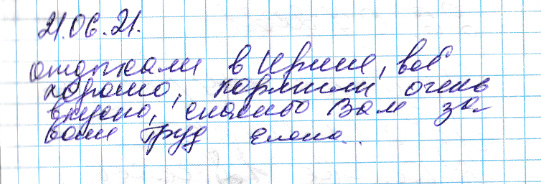 21.06.21.
отдыхали в Ирише, всё
хорошо, кормили очень
вкусно, спасибо Вам за
ваш труд Елена..